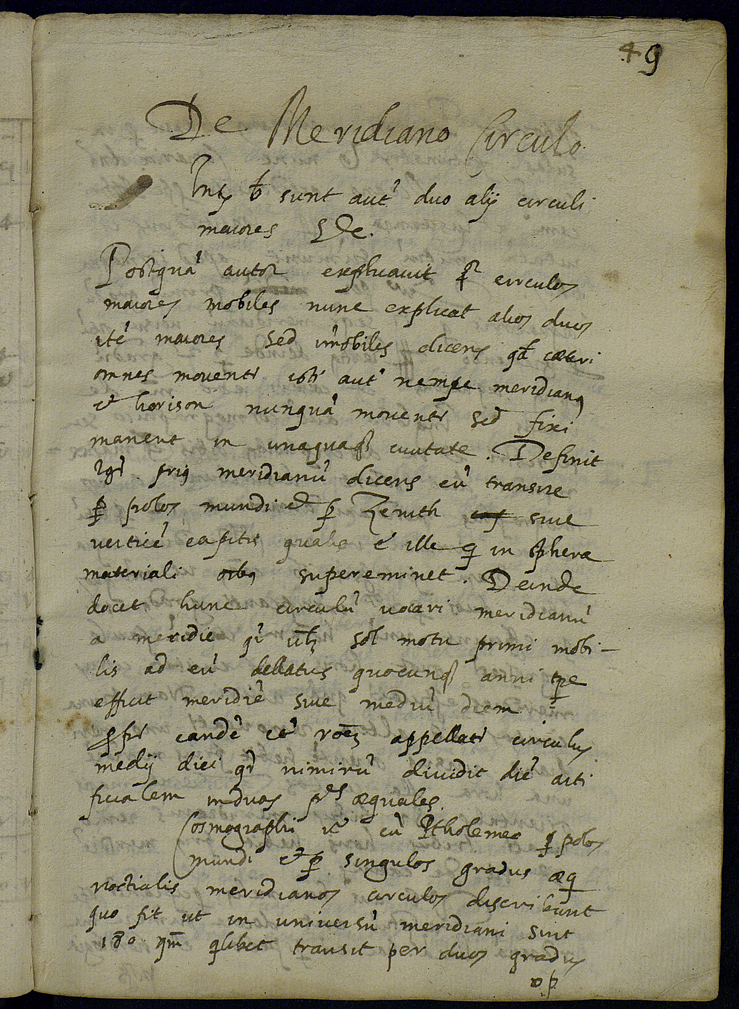 49
De Meridiano Circulo
sunt aut̄ duo alij circuli
maiores &c.
Postquā autor explicauit circulos
maiores mobiles nunc explicat alios duos
itē maiores sed īmobiles dicens qd̄ cæteri
omnes mouentr̄ aut̄ nempe meridianꝰ
et horison nunquā mouentr̄ sed fixi
manent in unaquaqȝ ciuitate. Definit
igr̄ priꝰ meridianū dicens eū transire
ꝑ polos mundi et ꝑ Zenith siue
verticē capitis qualis ē ille q in sphera
materiali supereminet. Deinde
docet hunc circulū uocari meridianū
a meridie sol motu primi mobi-
lis ad eū dellatus quocunqȝ anni tꝑe
efficit meridiē siue mediū diem
eandē appellatr̄ circulus
medij diei nimirū diuidit diē arti
ficialem in duas pt̄es æquales.
Cosmographi cū Ptholemeo ꝑ polos
mundi et ꝑ singulos gradus æq
noctialis meridianos circulos discribunt
quo fit ut in uniuersū meridiani sint
180 qm̄ qlibet transit per duos gradus